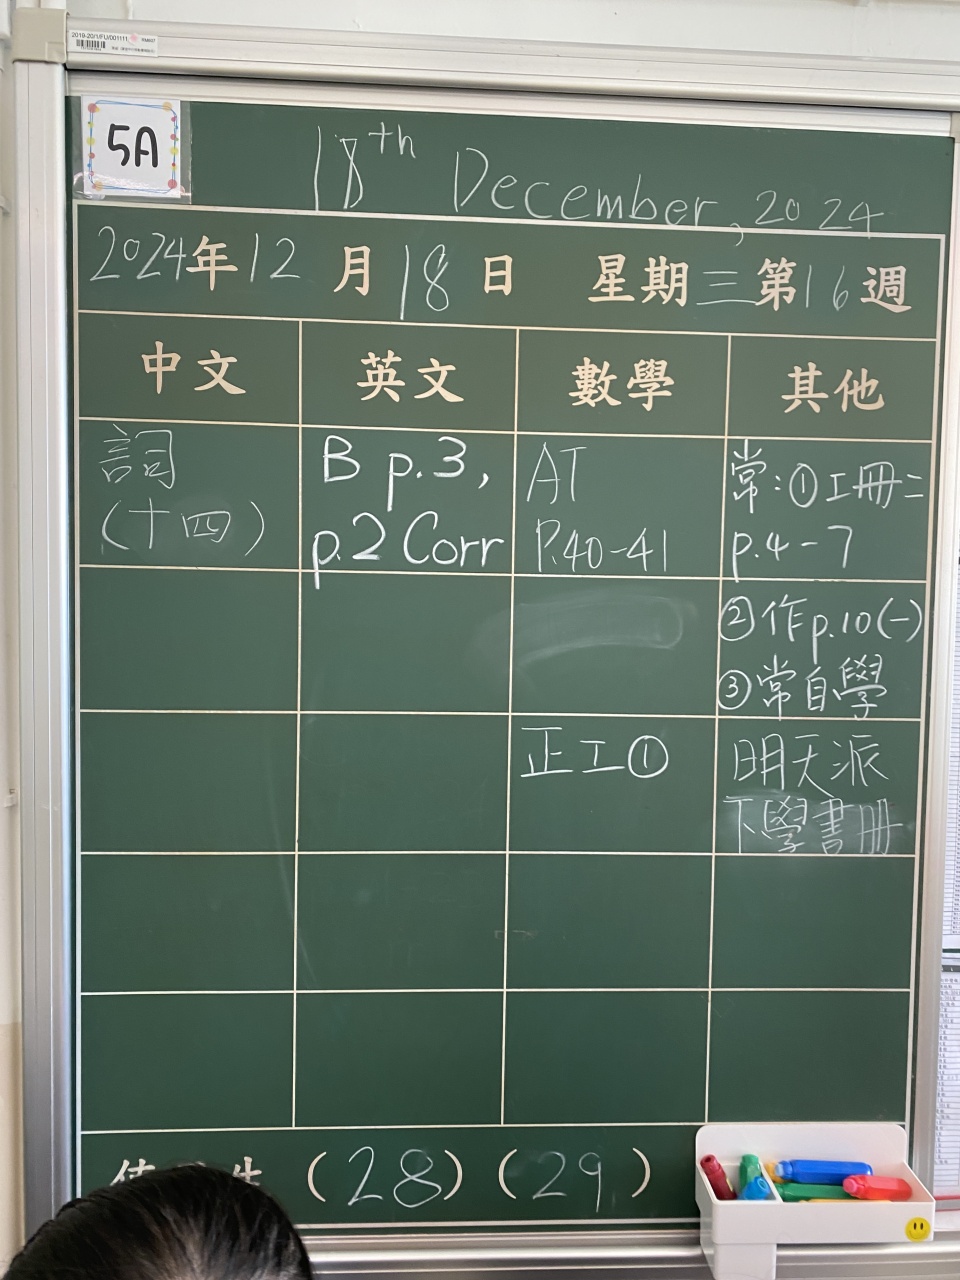 2019-20/1/FU/001111
5A
18th December, 2024
2024年12月18日 星期三第16週
中文 英文 數學 其他
詞
(十四)
B p.3,
p.2 Corr
AT
P.40-41
常:①工冊二
p.4-7
②作p.10(一)
③常自學
正工①
明天派
下學書冊
(28)(29)